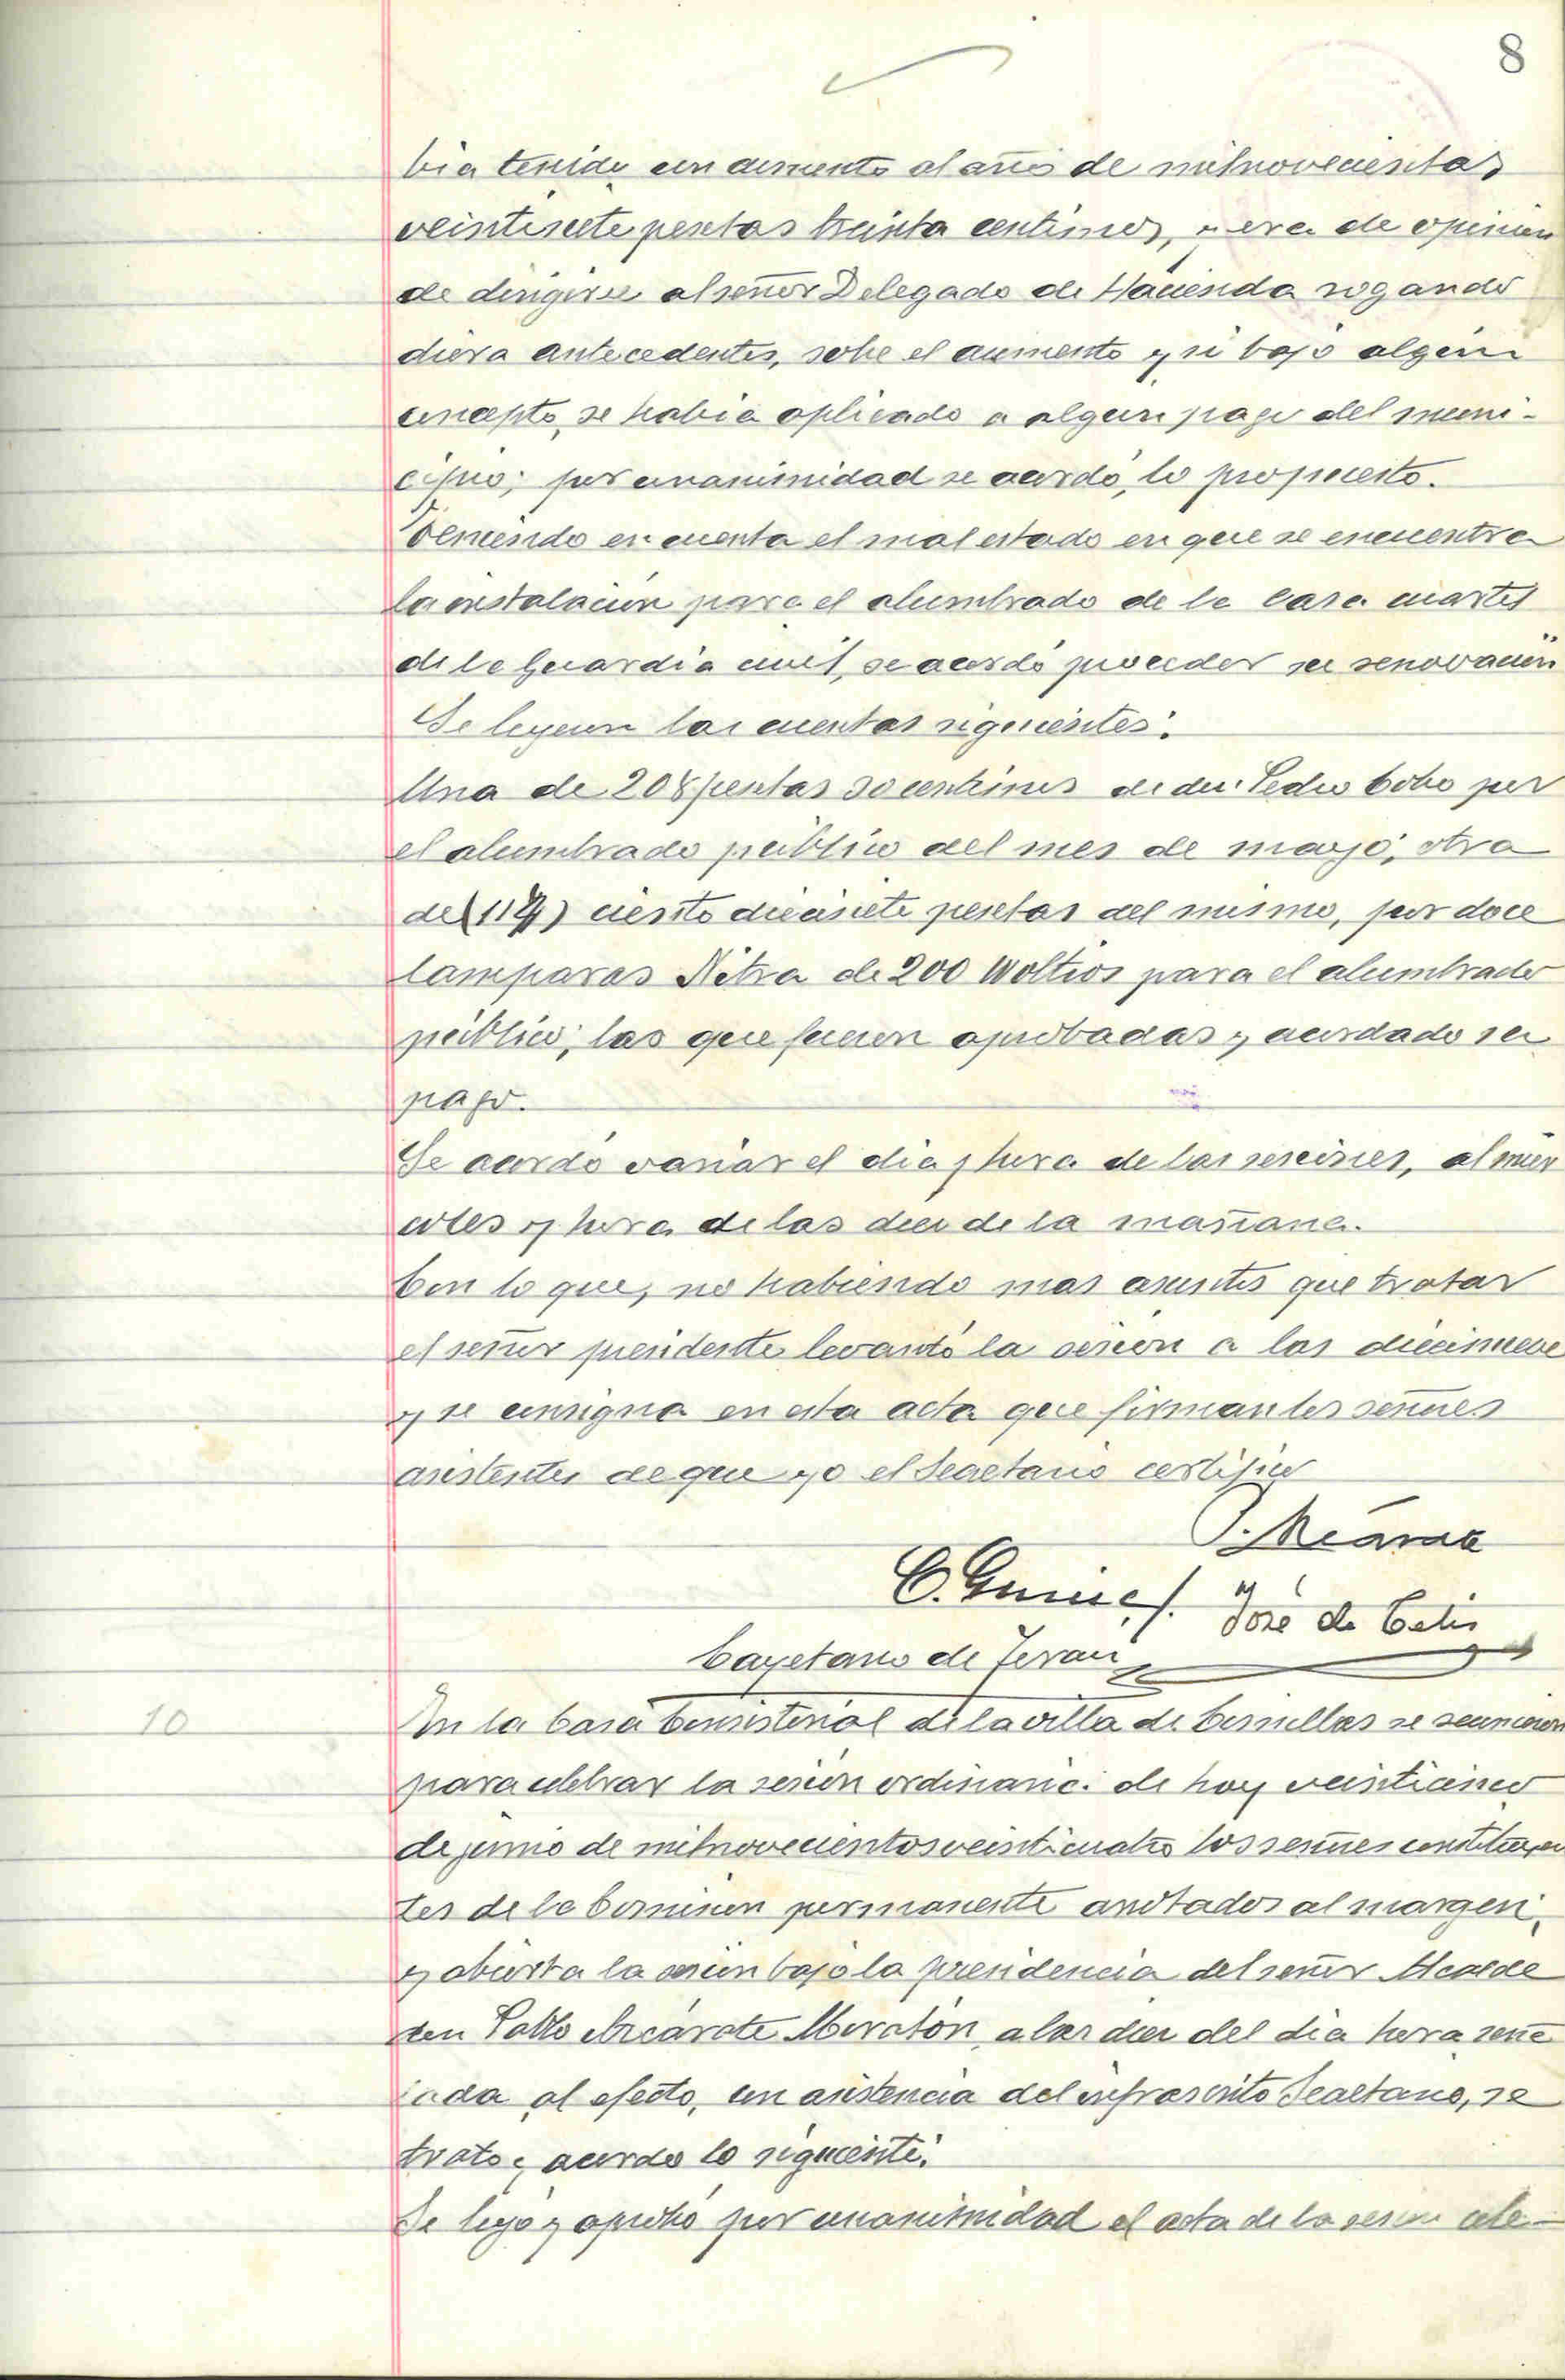 8
bia tenido un aumento al año de milnovecientas
veintisiete pesetas treinta centimos, y era de opinion
de dirigirse al señor Delegado de Hacienda rogando
diera antecedentes, sobre el aumento y si bajo algun
concepto, se habia aplicado a algun pago del muni-
cipio; por unanimidad se acordó, lo propuesto.
Teniendo en cuenta el mal estado en que se encuentra
la instalacion para el alumbrado de la casa cuartel
de la Guardia civil, se acordó proceder su renovacion
Se leyeron las cuentas siguientes:
Una de 208 pesetas 30 centimos de don Pedro Cobo por
el alumbrado publico del mes de mayo; otra
de (117) ciento diecisiete pesetas del mismo, por doce
lamparas Nitra de 200 Woltios para el alumbrado
publico; las que fueron aprobadas y acordado su
pago.
Se acordó variar el dia y hora de las sesiones, al mier
coles y hora de las diez de la mañana.
Con lo que, no habiendo mas asuntos que tratar
el señor presidente levantó la sesion a las diecinueve
y se consigna en esta acta que firman los señores
asistentes de que yo el Secretario certifico
José de Celis
Cayetano de Teran
10
En la Casa Consistorial de la villa de Comillas se reunieron
para celebrar la sesion ordinaria de hoy veinticinco
de junio de milnovecientos veinticuatro los señores constituyen
tes de la Comision permanente anotados al margen,
y abierta la sesion bajo la presidencia del señor Alcalde
don Pablo Azcárate a las diez del dia hora seña
lada al efecto, con asistencia del infrascrito Secretario, se
trato y acordo lo siguiente:
Se leyó y aprobó por unanimidad el acta de la sesion cele-